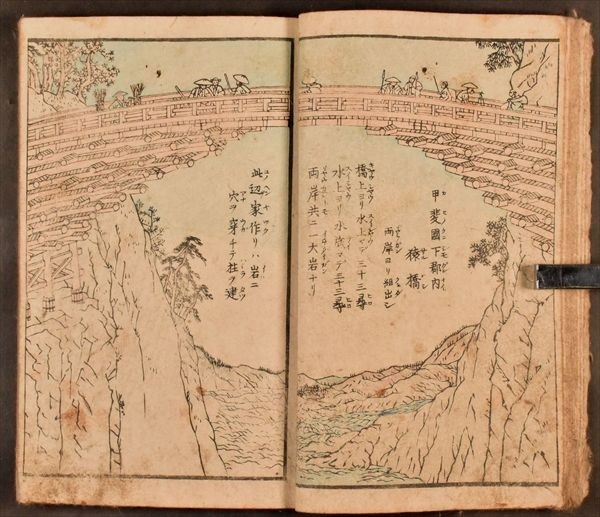 甲斐國下郡内
猿橋
両岸ヨリ組出シ
橋上ヨリ水上マデ三十三尋
水上ヨリ水底マデ三十三尋
両岸共ニ一大岩ナリ
此辺家作リハ岩ニ
穴ヲ穿チテ柱ヲ建